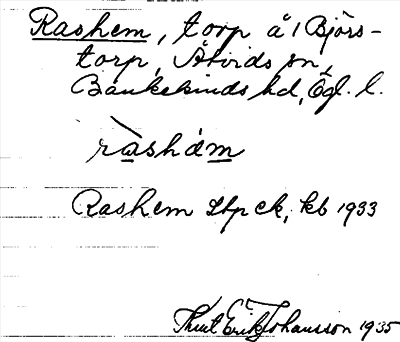 Rashem, torp å 1 Björs-
torp, Åtvids sn,
Bankekinds hd, Ögl. l.
ràshém
Rashem Stpck, kb 1933
Knut Erik Johansson 1935